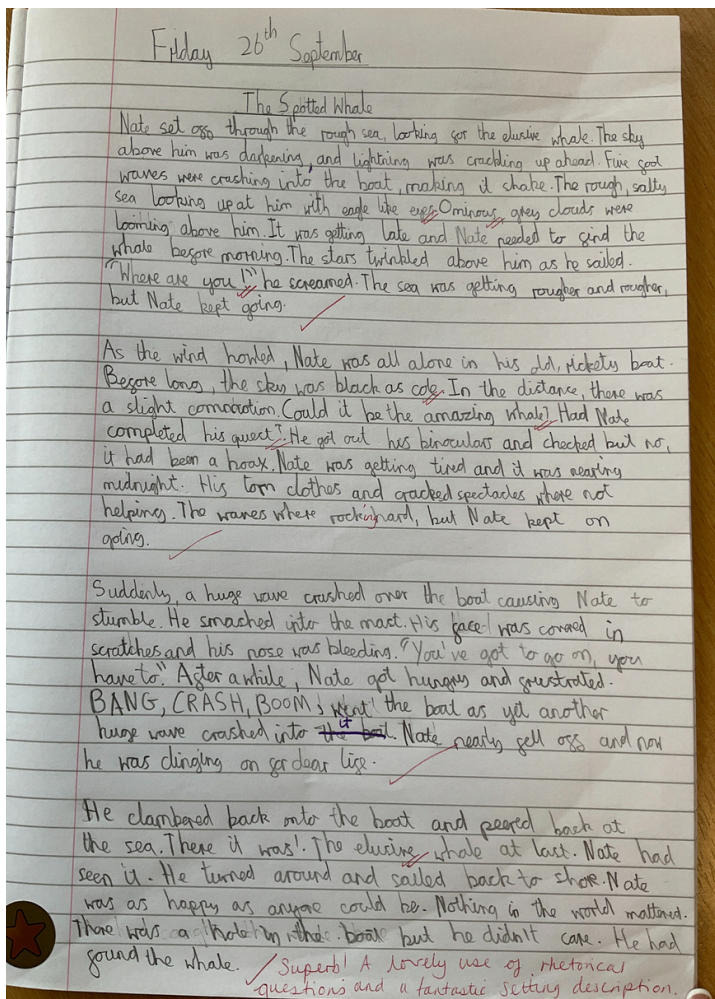 Friday 26th September
The Spotted Whale
Nate set off through the rough sea, looking for the elusive whale. The sky
above him was darkening, and lightning was crackling up ahead. Five foot
waves were crashing into the boat, making it shake. The rough, salty
sea looking up at him with eagle like eyes. Ominous, grey clouds were
looming above him. It was getting late and Nate needed to find the
whale before morning. The stars twinkled above him as he sailed.
"Where are you!" he screamed. The sea was getting rougher and rougher,
but Nate kept going.
As the wind howled, Nate was all alone in his old, rickety boat.
Before long, the sky was black as cole. In the distance, there was
a slight commotion. Could it be the amazing whale? Had Nate
completed his quest? He got out his binoculars and checked but no,
it had been a hoax. Nate was getting tired and it was nearing
midnight. His torn clothes and cracked spectacles where not
helping. The waves where rocking hard, but Nate kept on
going.
Suddenly, a huge wave crashed over the boat causing Nate to
stumble. He smashed into the mast. His face was covered in
scratches and his nose was bleeding. "You've got to go on, you
have to." After a while, Nate got hungry and frustrated.
BANG, CRASH, BOOM! went the boat as yet another
huge wave crashed into it. Nate nearly fell off and now
he was clinging on for dear life.
He clambered back onto the boat and peered back at
the sea. There it was! The elusive whale at last. Nate had
seen it. He turned around and sailed back to shore. Nate
was as happy as anyone could be. Nothing in the world mattered.
There was a hole in the boat but he didn't care. He had
found the whale.
Superb! A lovely use of rhetorical
questions and a fantastic setting description.